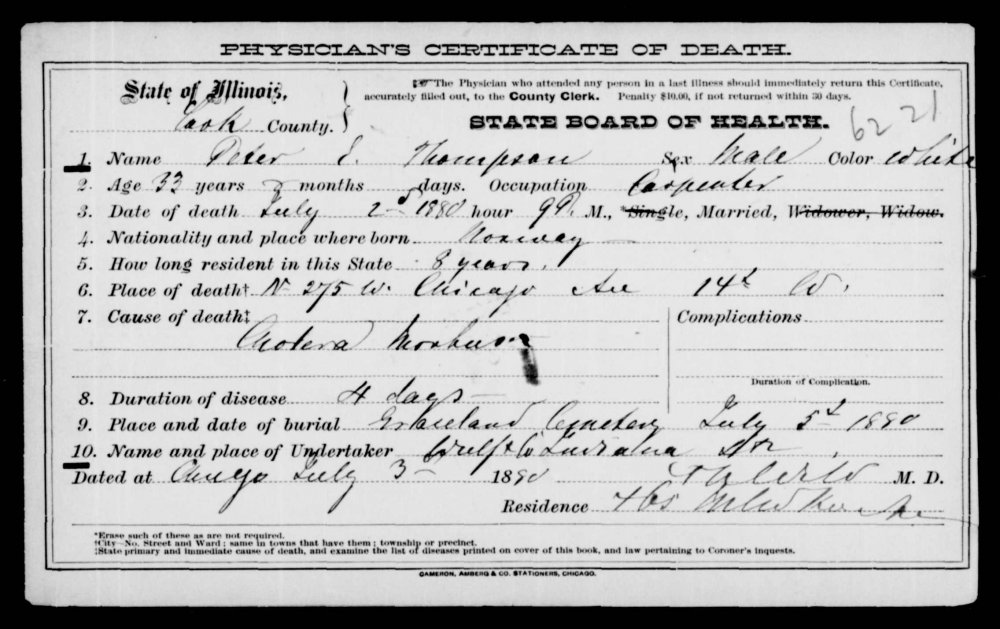 PHYSICIAN'S CERTIFICATE OF DEATH.
State of Illinois,
Cook County.
☞The Physician who attended any person in a last illness should immediately return this Certificate,
accurately filled out, to the County Clerk. Penalty $10.00, if not returned within 30 days.
STATE BOARD OF HEALTH.
6221
1. Name Peter E. Thompson Sex Male Color White
2. Age 33 years months days. Occupation Carpenter
3. Date of death July 2d 1880 hour 9 P. M., *Single, Married, Widower, Widow.
4. Nationality and place where born Norway
5. How long resident in this State 8 years.
6. Place of death† No 275 W. Chicago Ave 14th W.
7. Cause of death‡ Complications
Cholera Morbus
Duration of Complication.
8. Duration of disease 4 days
9. Place and date of burial Graceland Cemetery July 5th 1880
10. Name and place of Undertaker Indiana
Dated at Chicago July 3 1880 M. D.
Residence
*Erase such of these as are not required.
†City—No. Street and Ward; same in towns that have them; township or precinct.
‡State primary and immediate cause of death, and examine the list of diseases printed on cover of this book, and law pertaining to Coroner's inquests.
CAMERON, AMBERG & CO. STATIONERS, CHICAGO.